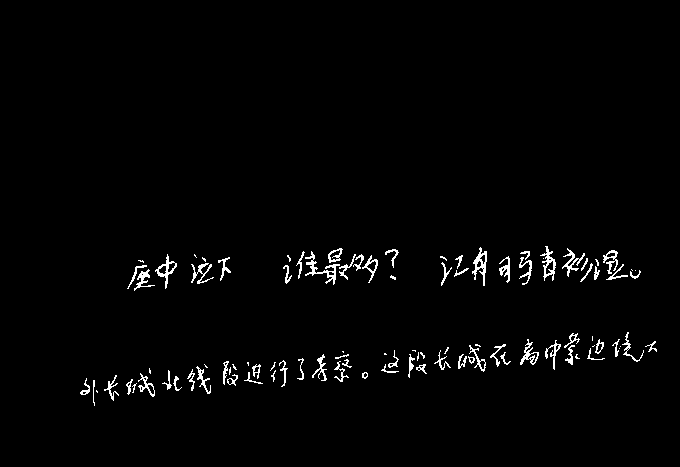 座中泣下 谁最多？ 江舟司马青衫湿。
外长城北线段进行了考察。这段长城在离中蒙边境大